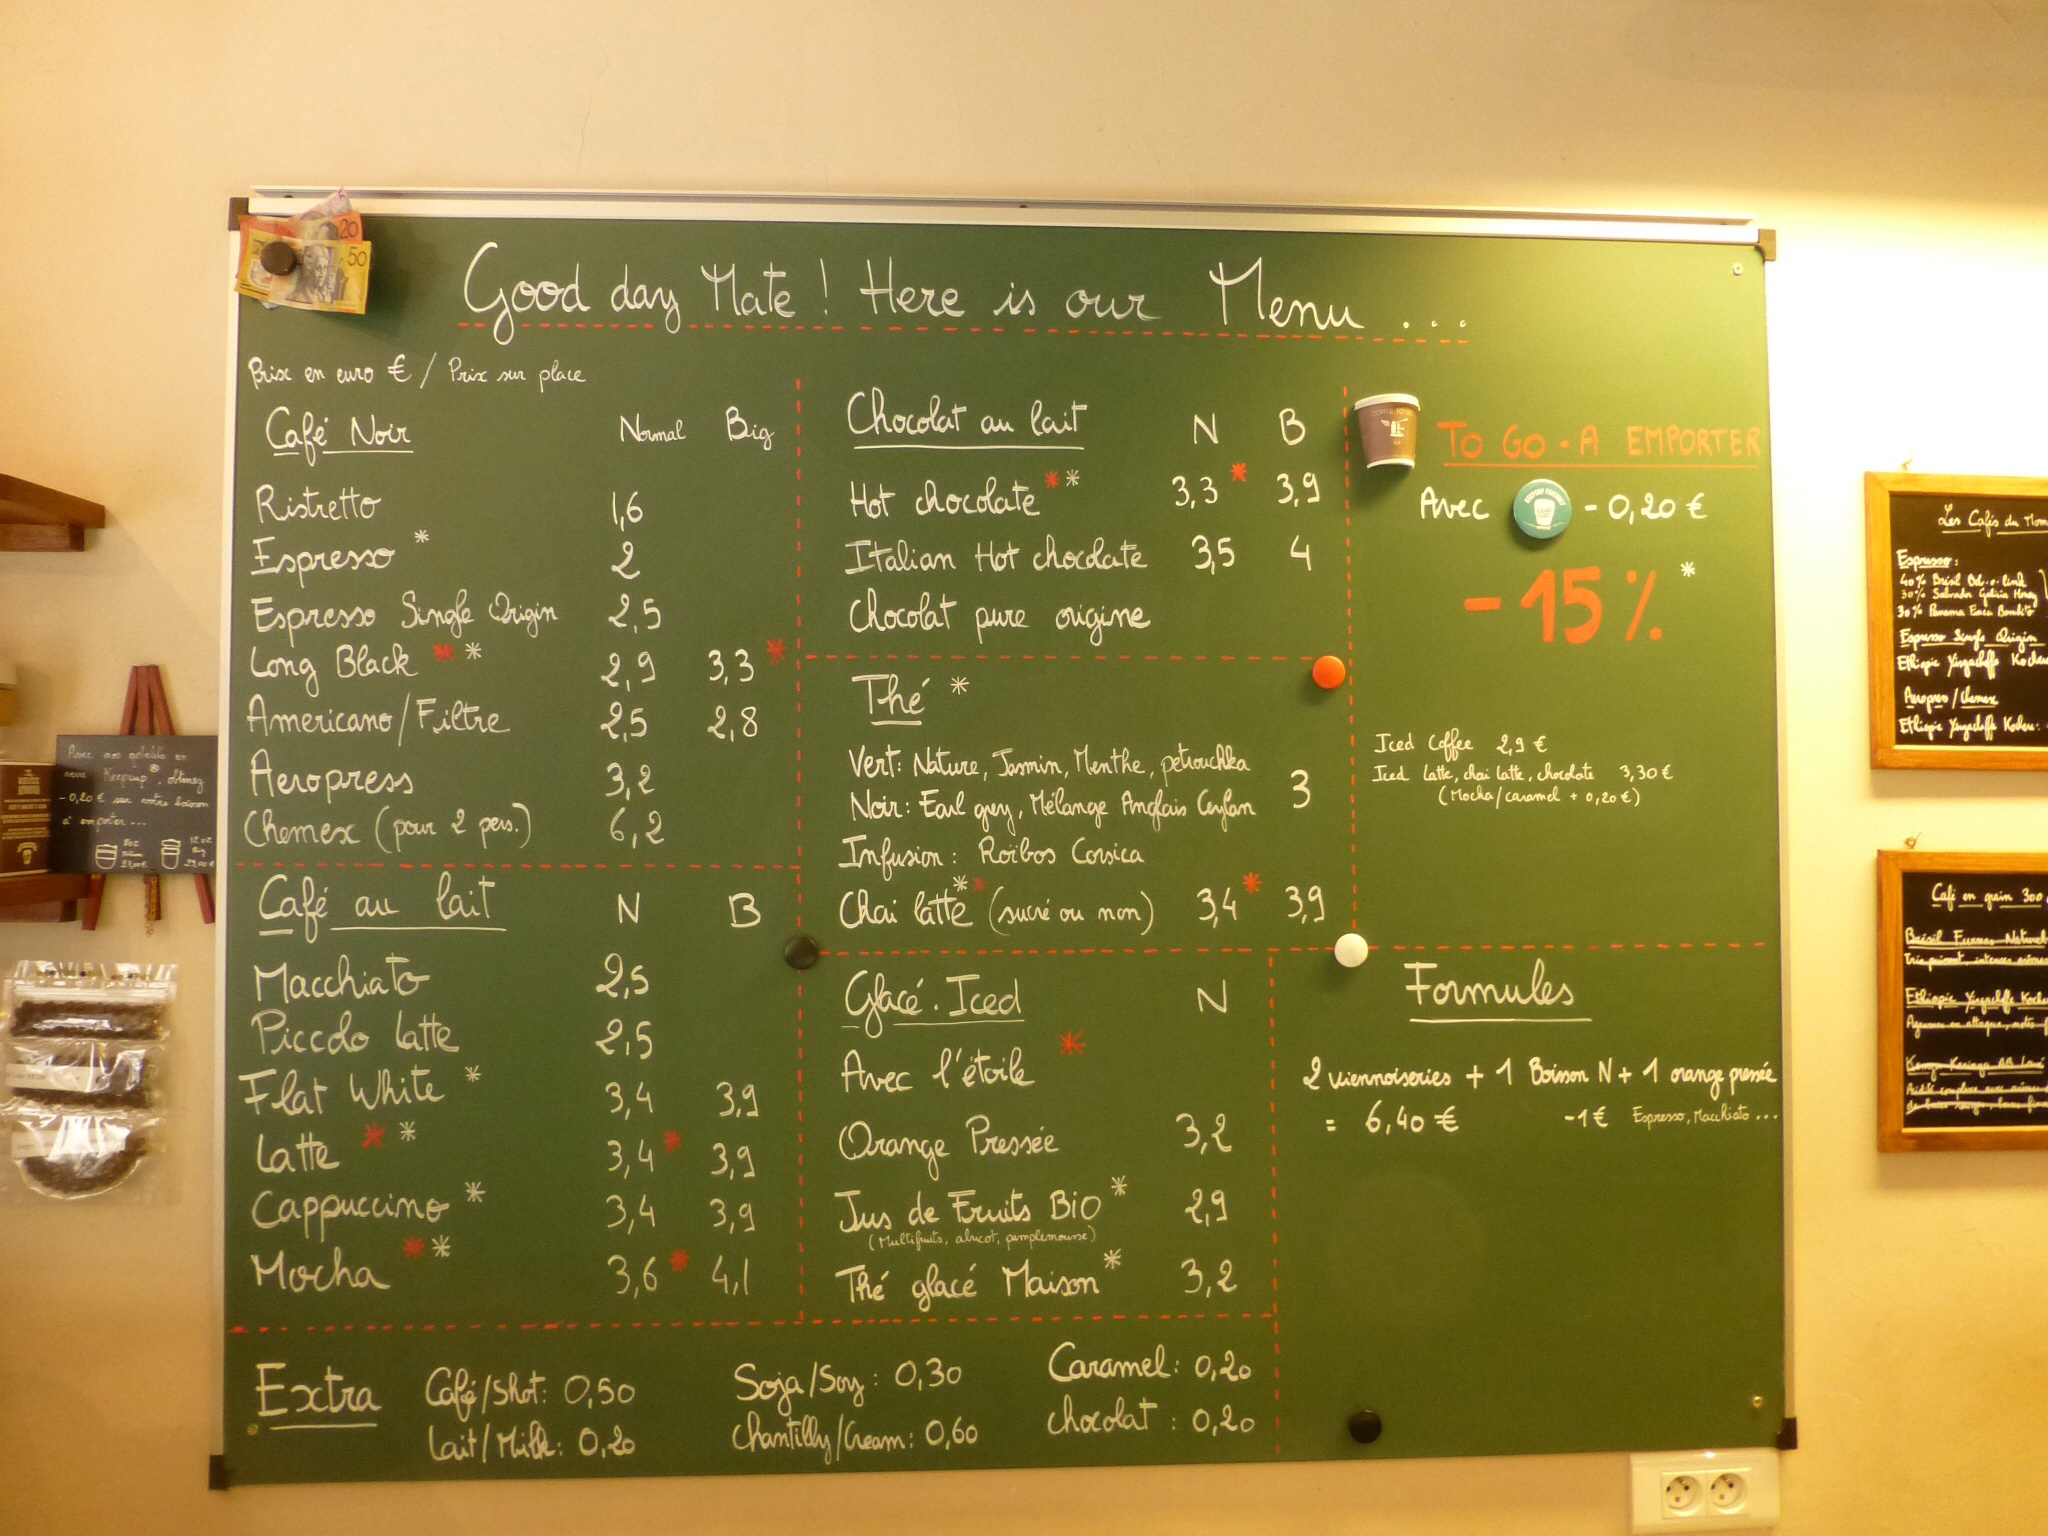 20
50
Good day Mate ! Here is our Menu ...
Prix en euro € / Prix sur place
Café Noir Normal Big
Ristretto 1,6
Espresso * 2
Espresso Single Origin 2,5
Long Black * * 2,9 3,3 *
Americano/Filtre 2,5 2,8
Aeropress 3,2
Chemex (pour 2 pers.) 6,2
Café au lait N B
Macchiato 2,5
Piccolo Latte 2,5
Flat White * 3,4 3,9
Latte * * 3,4 * 3,9
Cappuccino * 3,4 3,9
Mocha * * 3,6 * 4,1
Chocolat au lait N B
Hot chocolate * * 3,3 * 3,9
Italian Hot chocolate 3,5 4
Chocolat pure origine
Thé *
Vert: Nature, Jasmin, Menthe, petrouchka
Noir: Earl grey, Mélange Anglais Ceylan 3
Infusion: Roïbos Corsica
Chai latte * * (sucré ou non) 3,4 * 3,9
Glacé. Iced N
Avec l'étoile *
Orange Pressée 3,2
Jus de Fruits BiO * 2,9
(Multifruits, abricot, pamplemousse)
Thé glacé Maison * 3,2
TO GO - A EMPORTER
Avec - 0,20 €
- 15 % *
Iced Coffee 2,9 €
Iced latte, chai latte, chocolate 3,30 €
(Mocha/caramel + 0,20 €)
Formules
2 viennoiseries + 1 Boisson N + 1 orange pressée
= 6,40 € -1 € Espresso, Macchiato ...
Extra
Café/Shot: 0,50
Lait/Milk: 0,20
Soja/Soy: 0,30
Chantilly/Cream: 0,60
Caramel: 0,20
chocolat : 0,20
Avec nos gobelets en
verre Keepcup, obtenez
- 0,20 € sur votre boisson
à emporter ...
Les Cafés du
Espresso:
40%
30% Salvador
30% Panama
Espresso Single Origin
Ethiopie
Aeropress/Chemex
Ethiopie
Café en grain 300
Brésil
Ethiopie